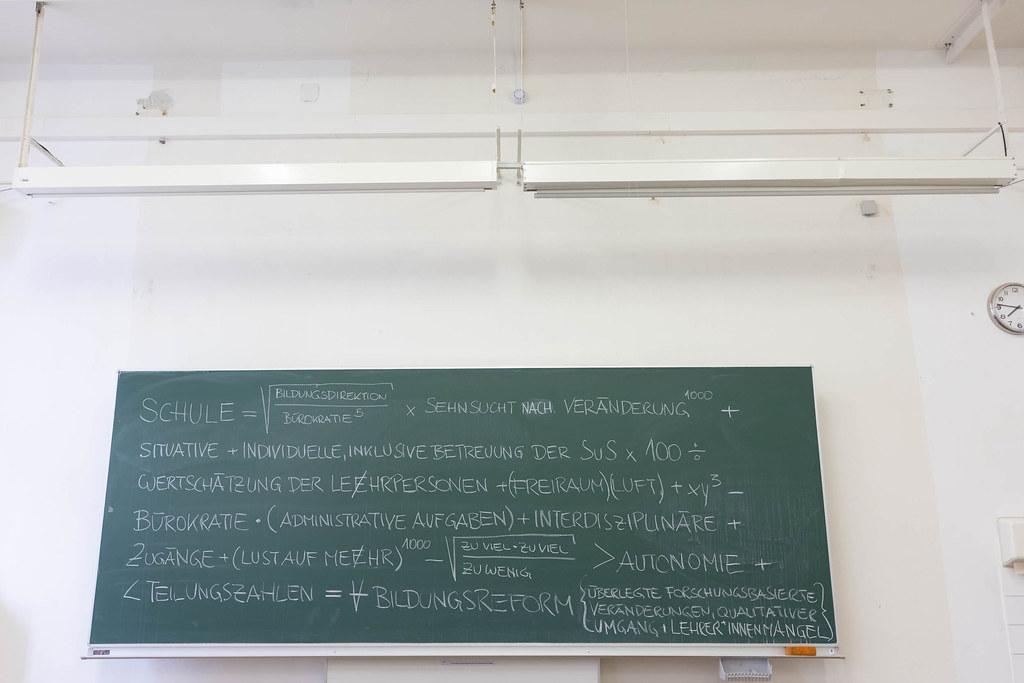 SCHULE = √(BILDUNGSDIREKTION / BÜROKRATIE⁵) × SEHNSUCHT NACH VERÄNDERUNG¹⁰⁰⁰ +
SITUATIVE + INDIVIDUELLE, INKLUSIVE BETREUUNG DER SuS × 100 ÷
WERTSCHÄTZUNG DER LEHRPERSONEN + (FREIRAUM)(LUFT) + xy³ –
BÜROKRATIE · (ADMINISTRATIVE AUFGABEN) + INTERDISZIPLINÄRE +
ZUGÄNGE + (LUST AUF MEHR)¹⁰⁰⁰ – √(ZU VIEL · ZU VIEL / ZU WENIG) > AUTONOMIE +
< TEILUNGSZAHLEN = ∀ BILDUNGSREFORM {ÜBERLEGTE FORSCHUNGSBASIERTE
VERÄNDERUNGEN, QUALITATIVER
UMGANG + LEHRER*INNENMANGEL}